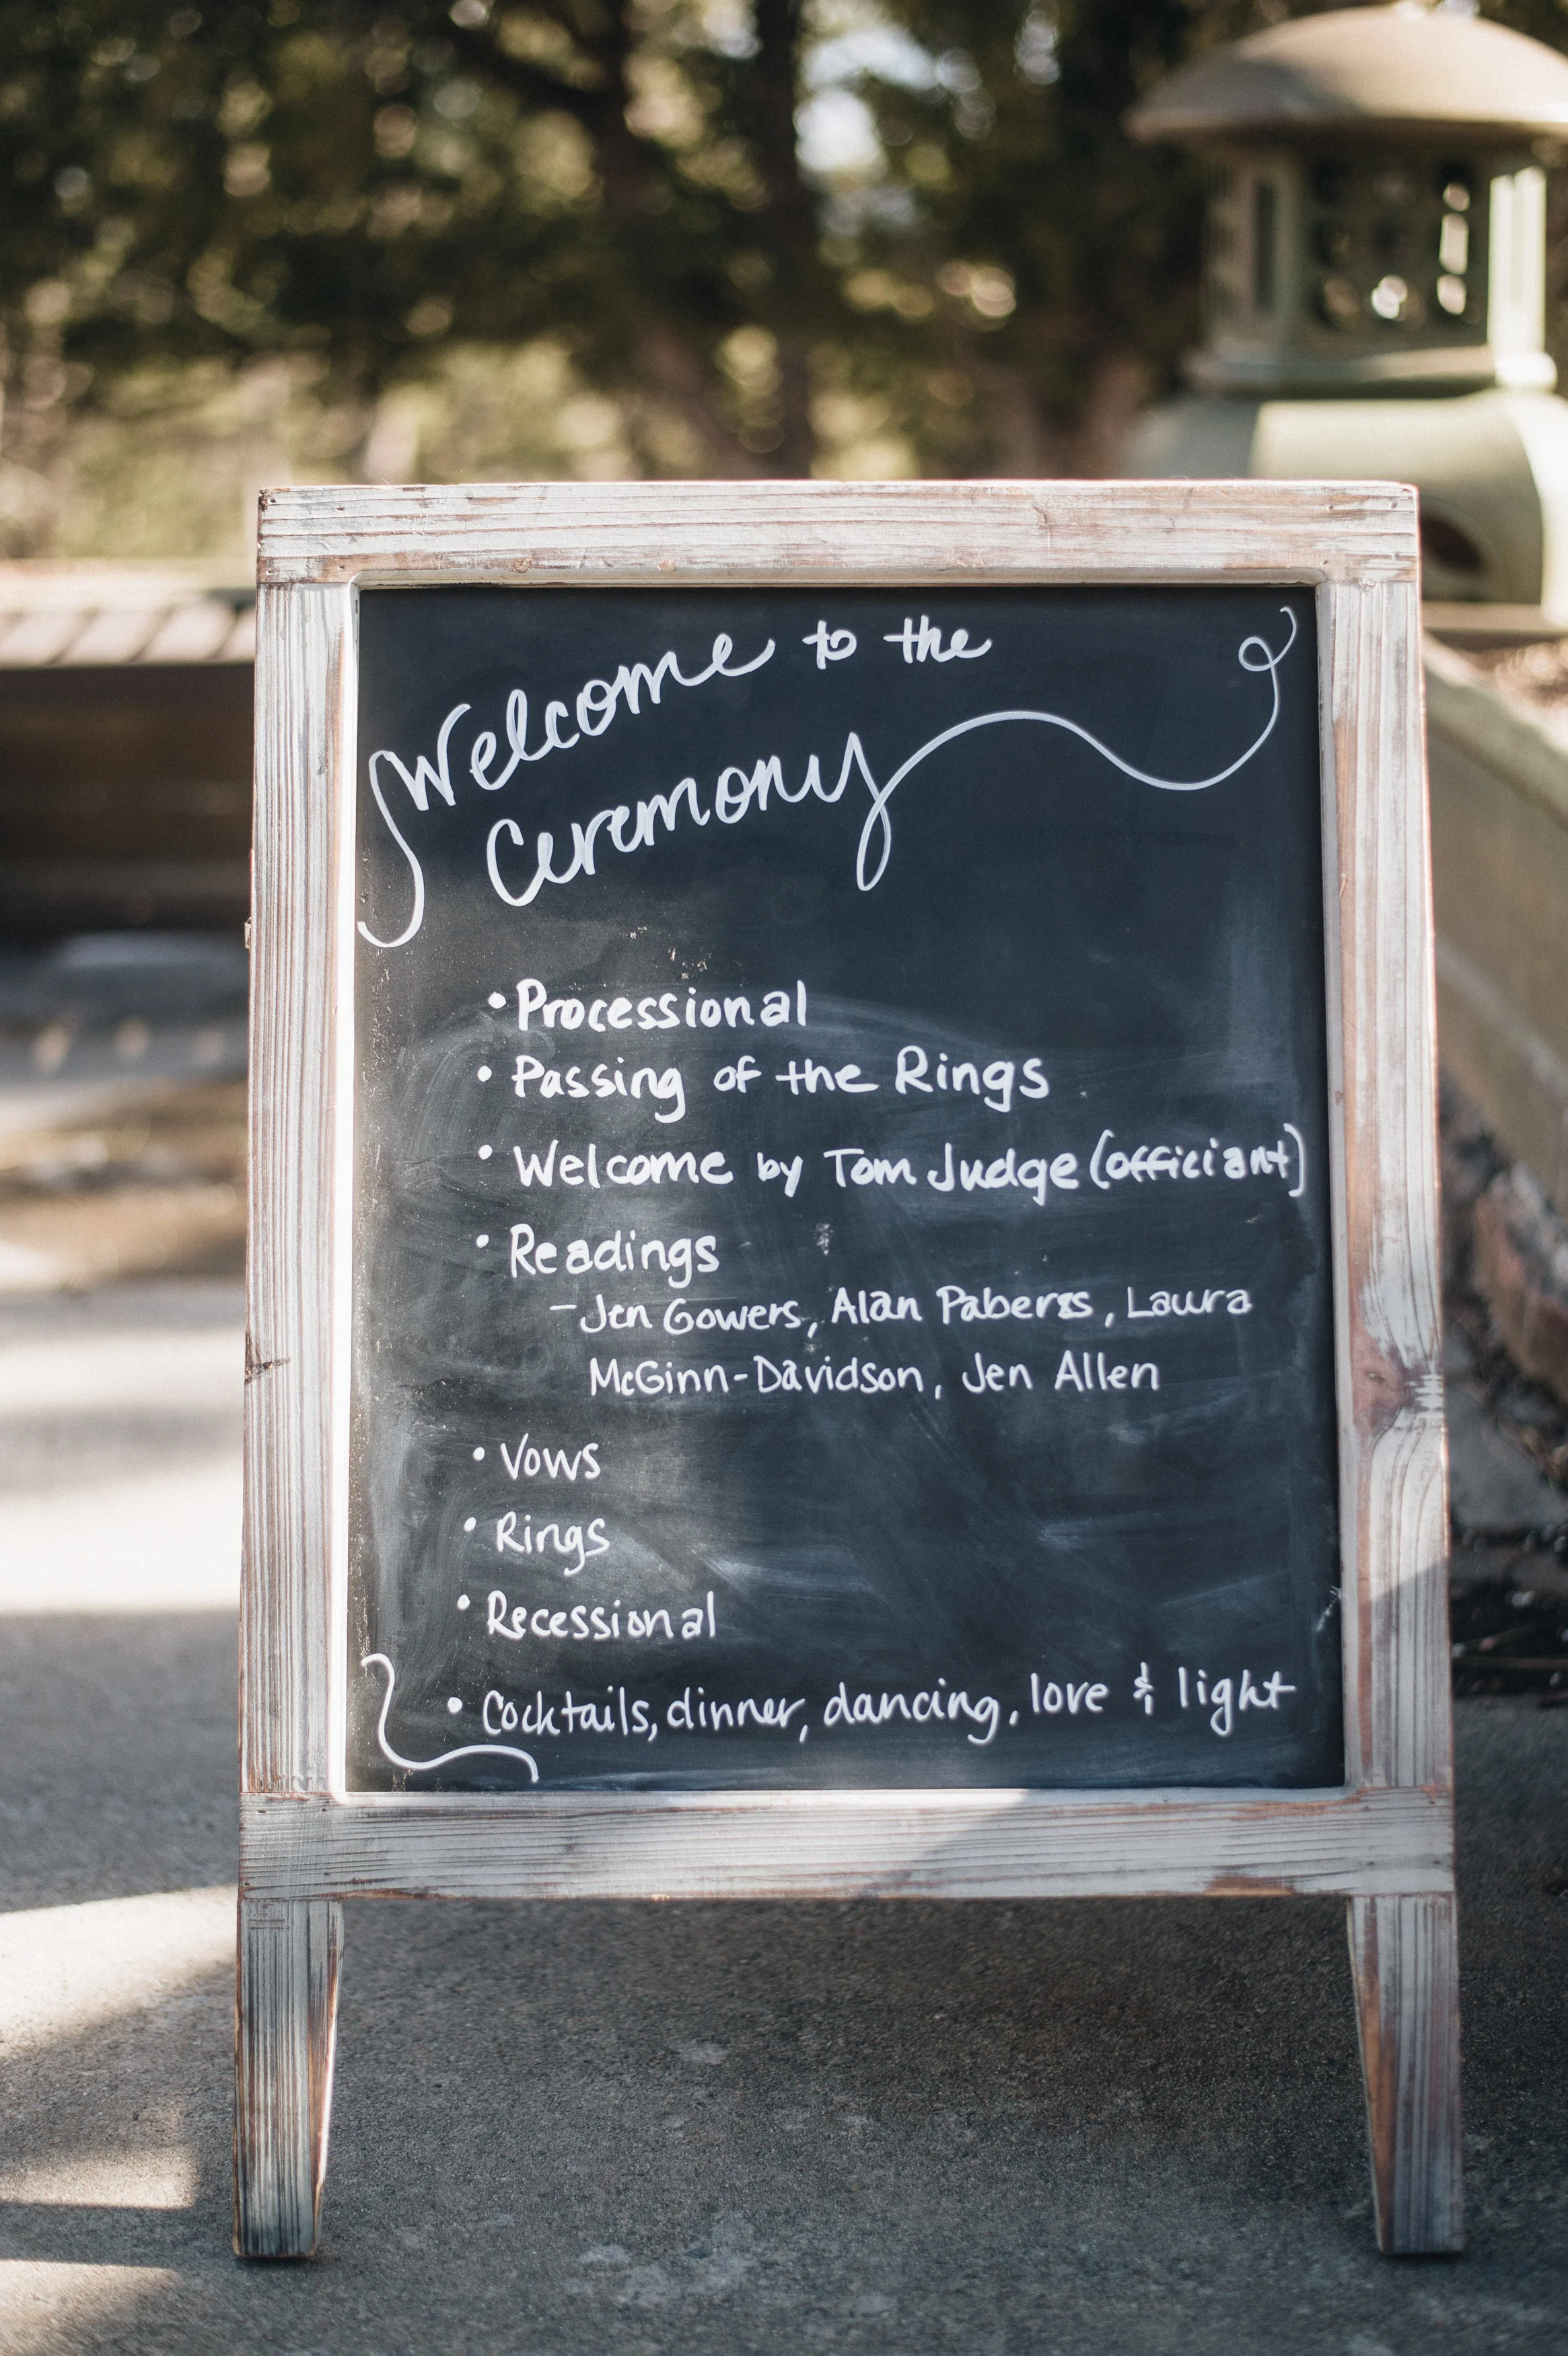 Welcome to the
Ceremony
• Processional
• Passing of the Rings
• Welcome by Tom Judge (officiant)
• Readings
- Jen Gowers, Alan
, Laura
McGinn-Davidson, Jen Allen
• Vows
• Rings
• Recessional
• Cocktails, dinner, dancing, love & light